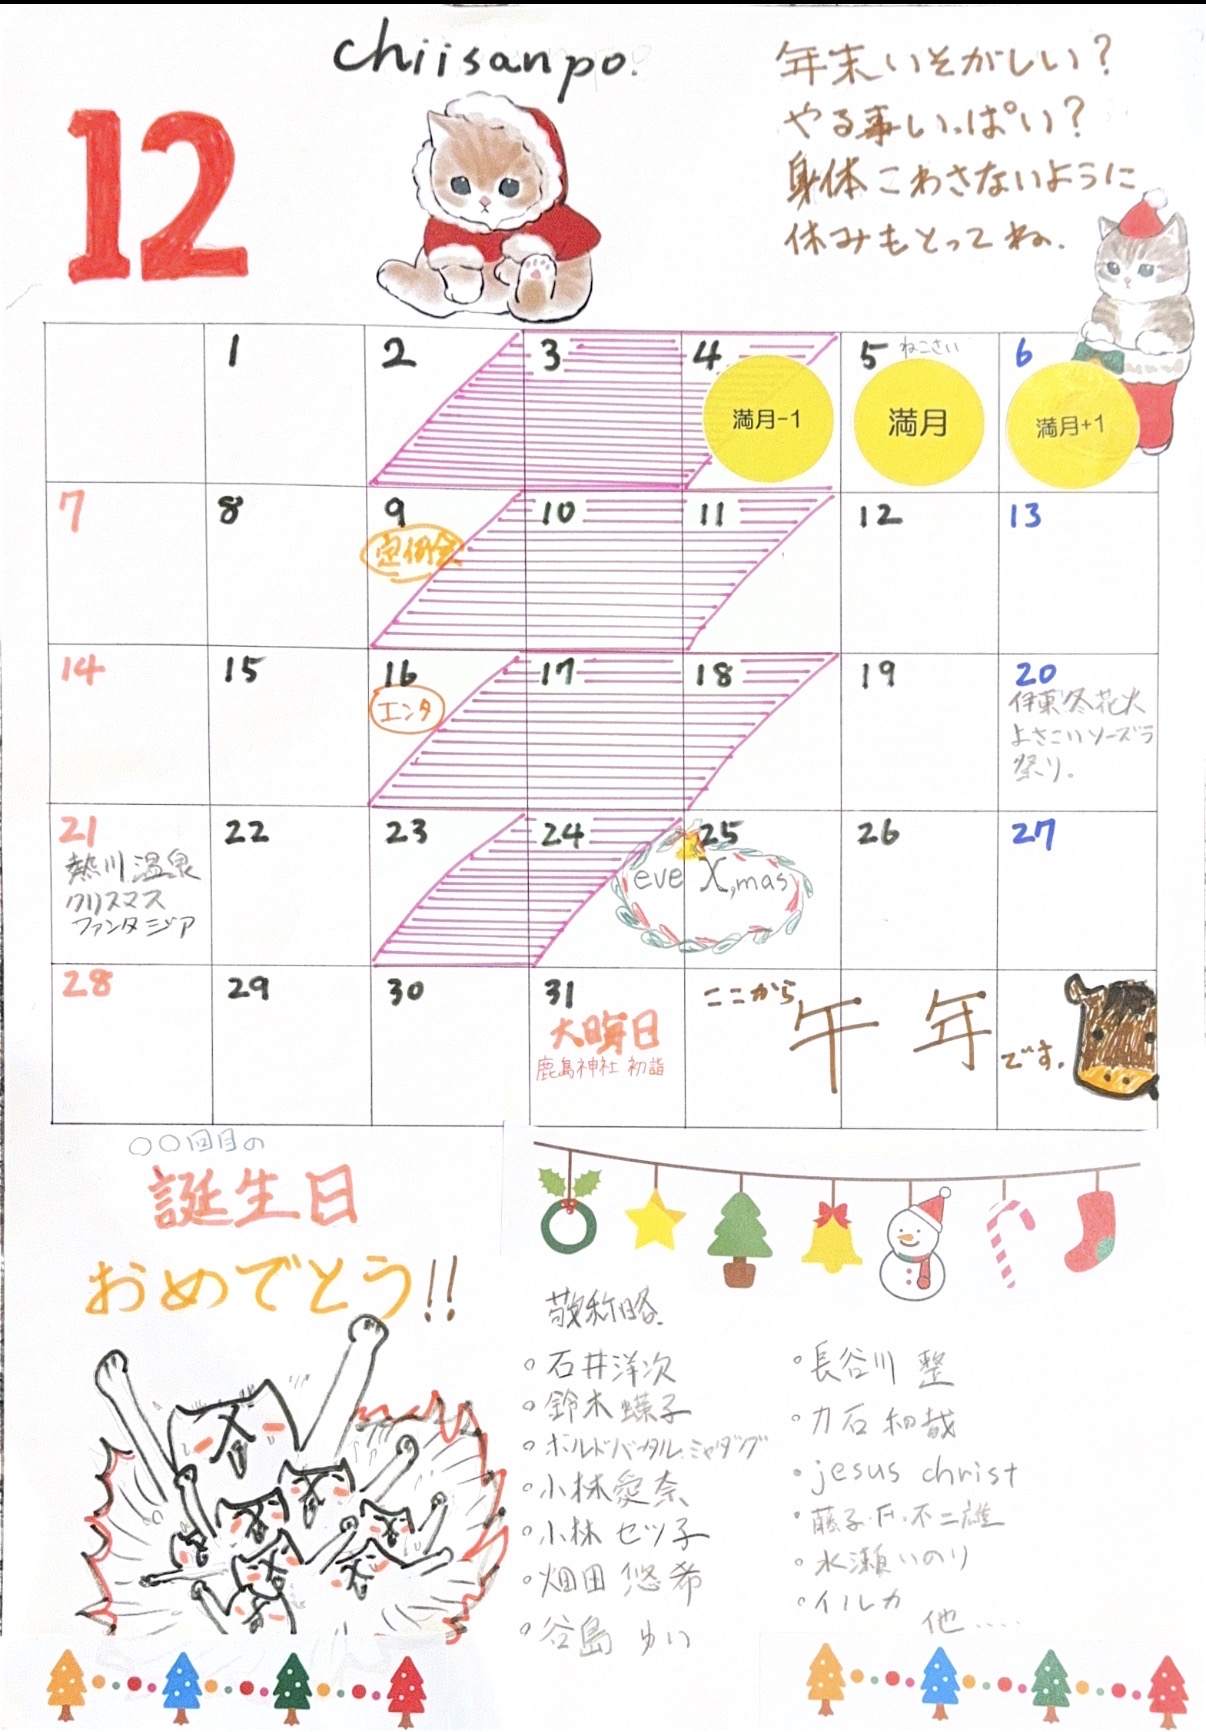 chiisanpo.
12
年末いそがしい？
やる事いっぱい？
身体こわさないように
休みもとってね.
1
2
3
4
満月-1
5
ねこさい
満月
6
満月+1
7
8
9
定例会
10
11
12
13
14
15
16
エンタ
17
18
19
20
伊東冬花火
よさこいソーズラ
祭り.
21
熱川温泉
クリスマス
ファンタジア
22
23
24
eve
25
X,mas
26
27
28
29
30
31
大晦日
鹿島神社 初詣
ここから
午年
です.
〇〇回目の
誕生日
おめでとう!!
敬称略.
・石井洋次
・鈴木蝶子
・ボルドバータル.ミャダグ
・小林愛奈
・小林セツ子
・畑田悠希
・谷島ゆい
・長谷川 整
・力石和哉
・jesus christ
・藤子・F・不二雄
・水瀬いのり
・イルカ
他....